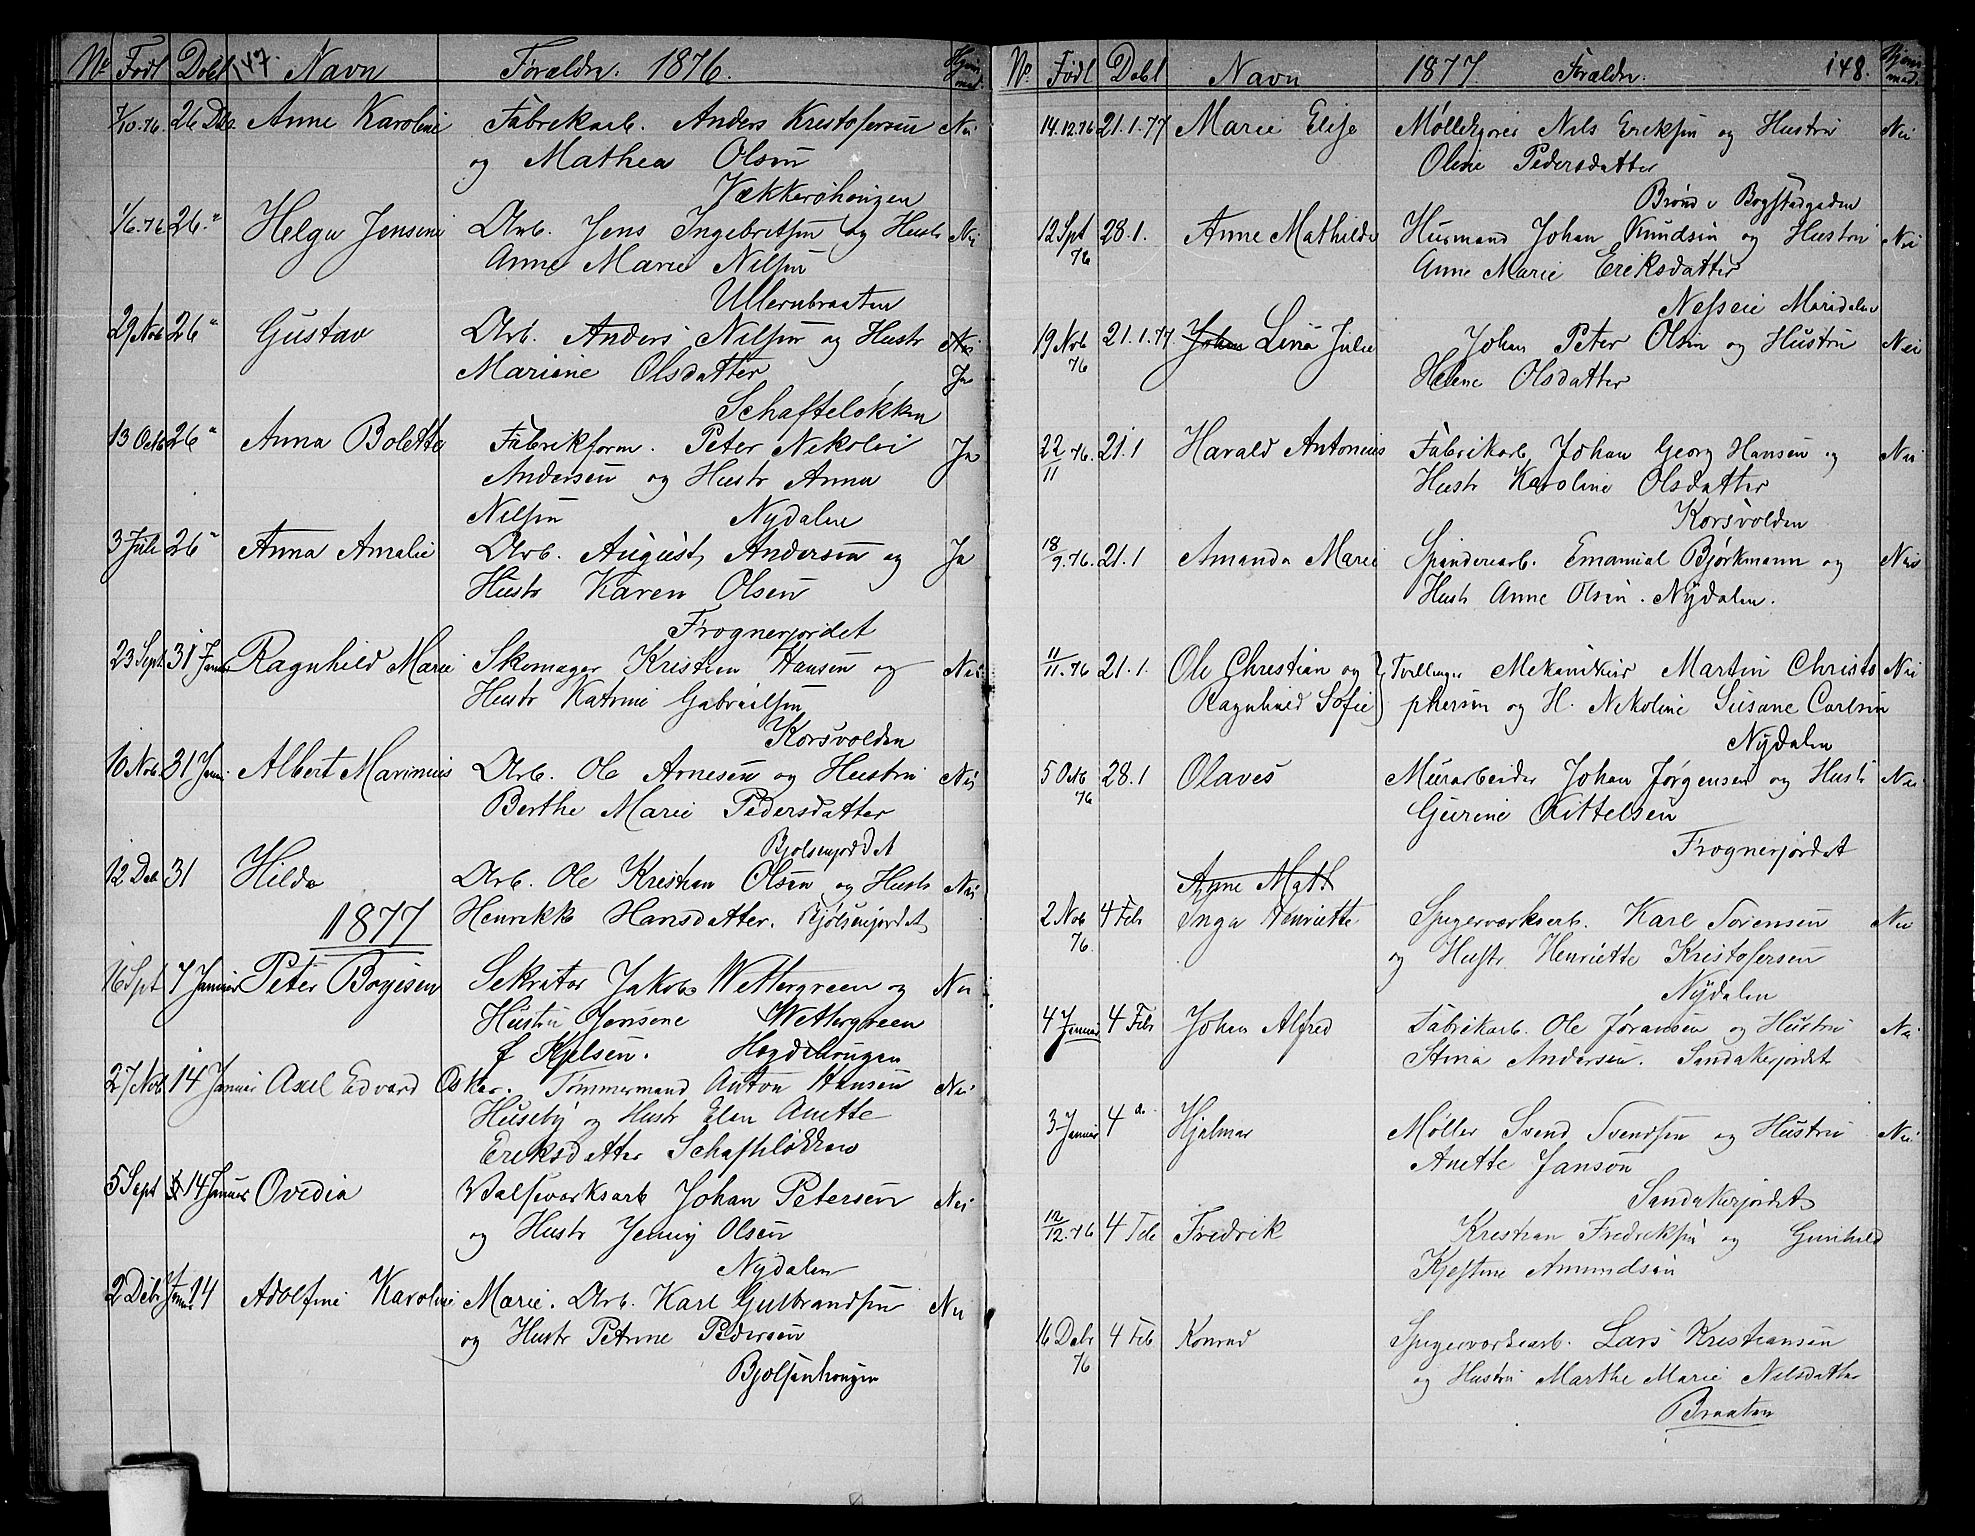 No Født Døbt 147. Navn Forældre. 1876. Hjem med.
7/10.76 26 Dbr. Anne Karoline Fabrikarb. Anders Kristofersen Nei
og Mathea Olsen
Vækkerøhougen
1/6.76 26 " Helga Jensine Arb. Jens Ingebretsen og Hustr Nei
Anne Marie Nilsen
Ullernbraaten
29 Nob 26 " Gustav Arb. Anders Nilsen og Hustr Nei
Mariene Olsdatter Ja
Schafteløkken
13 Octb 26 " Anna Bolette Fabrikform. Peter Nikolai Ja
Andersen og Hustr Anna
Nilsen Nydalen
3 Juli 26 " Anna Amalie Arb. August Andersen og Ja
Hustr Karen Olsen
Frognerjordet
23 Sept 31 Januar Ragnhild Marie Skomager Kristian Hansen og Nei
Hustr Katrine Gabrielsen
Korsvolden
10 Nob. 31 Janu. Albert Marinius Arb. Ole Arnesen og Hustru Nei
Berthe Marie Pedersdatter
Bjølsenjordet
12 Deb 31 Hilda Arb. Ole Kristian Olsen og Hustr Nei
1877 Henrikke Hansdatter. Bjølsenjordet
16 Spt 7 Januar Peter Boyesen Sekretær Jakob Wettergreen og Nei
Hustru Jensene Wettergreen
f. Kjelsen. Hægdehougen
27 Nob 14 Januar Axel Edvard Oskar. Tømmermand Anton Hansen Nei
Huseby og Hustr Elen Anette
Eriksdatter Schafteløkken
5 Sept 14 Januar Ovedia Valseværksarb Johan Petersen Nei
og Hustr Jenny Olsen
Nydalen
2 Debr Janu. 14 Adolfine Karoline Marie. Arb. Karl Gulbrandsen Nei
og Hustr Petrine Pedersen
Bjølsenhougen
No. Født Døbt Navn 1877 Forældre. 148. Hjem med.
14.12.76 21.1.77 Marie Elise Møllekjører Nils Eriksen og Hustru Nei
Oline Pedersdatter
Brønd v Bogstadgaden
12 Spt 28.1. Anne Mathilde Husmand Johan Knudsen og Hustru Nei
76 Anne Marie Ereksdatter
Nesseie Maridalen
19 Nob 21.1.77 Johan Lina Julie Johan Peter Olsen og Hustru Nei
76 Helene Olsdatter
22/11 76. 21.1 Harald Antonius Fabrikarb Johan Georg Hansen og Nei
Hustr Karoline Olsdatter
Korsvolden
18/9.76. 21.1 Amanda Marie Spinderiarb. Emanuel Bjørkmann og Nei
Hustr Anne Olsen. Nydalen.
11/11.76 21.1. Ole Christian og } Tvillinger Mekanikker Martin Christo Nei
Ragnhild Sofie } phersen og H. Nikoline Susane Carlsen
Nydalen
5 Octb 28.1 Olaves Murarbeider Johan Jørgensen og Hustr Nei
76 Gurine Kittelsen
Frognerjordet
Anne Math
2 Nob 4 Feb Inga Henriette Spigerværksarb. Karl Sørensen Nei
76. og Hustr Henriette Kristofersen
Nydalen
4 Januar 4 Feb Johan Alfred Fabrikarb. Ole Jøransen og Hustru Nei
Stina Andersen. Sandakerjordet
3 Januar 4 d. Hjalmar Møller Svend Svendsen og Hustru Nei
Anette Janson
Sandakerjordet
12/12.76 4 Feb Fredrik Krestian Fredriksen og Gunhild
Kjestine Amundsen
16 Debr 4 Feb Konrad Spigerværksarb. Lars Kristiansen
76 og Hustru Marthe Marie Nilsdatter
Braaten